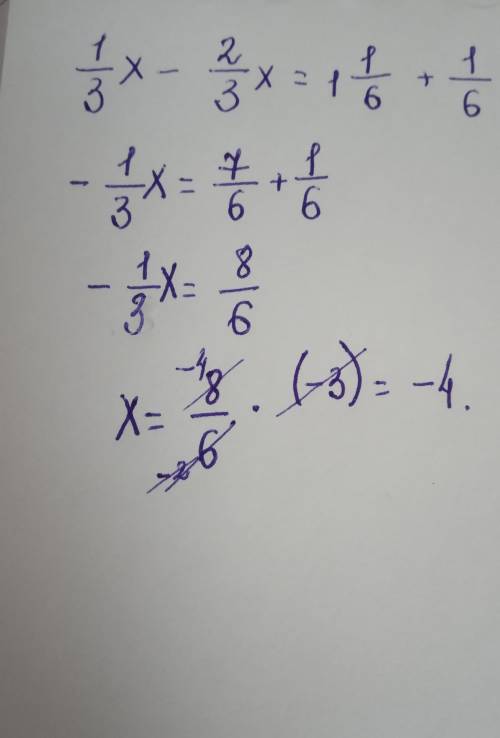 1/3 x - 2/3 x = 1 1/6 + 1/6
- 1/3 x = 7/6 + 1/6
- 1/3 x = 8/6
x = -4 8/6 -2 · (-3) = -4.